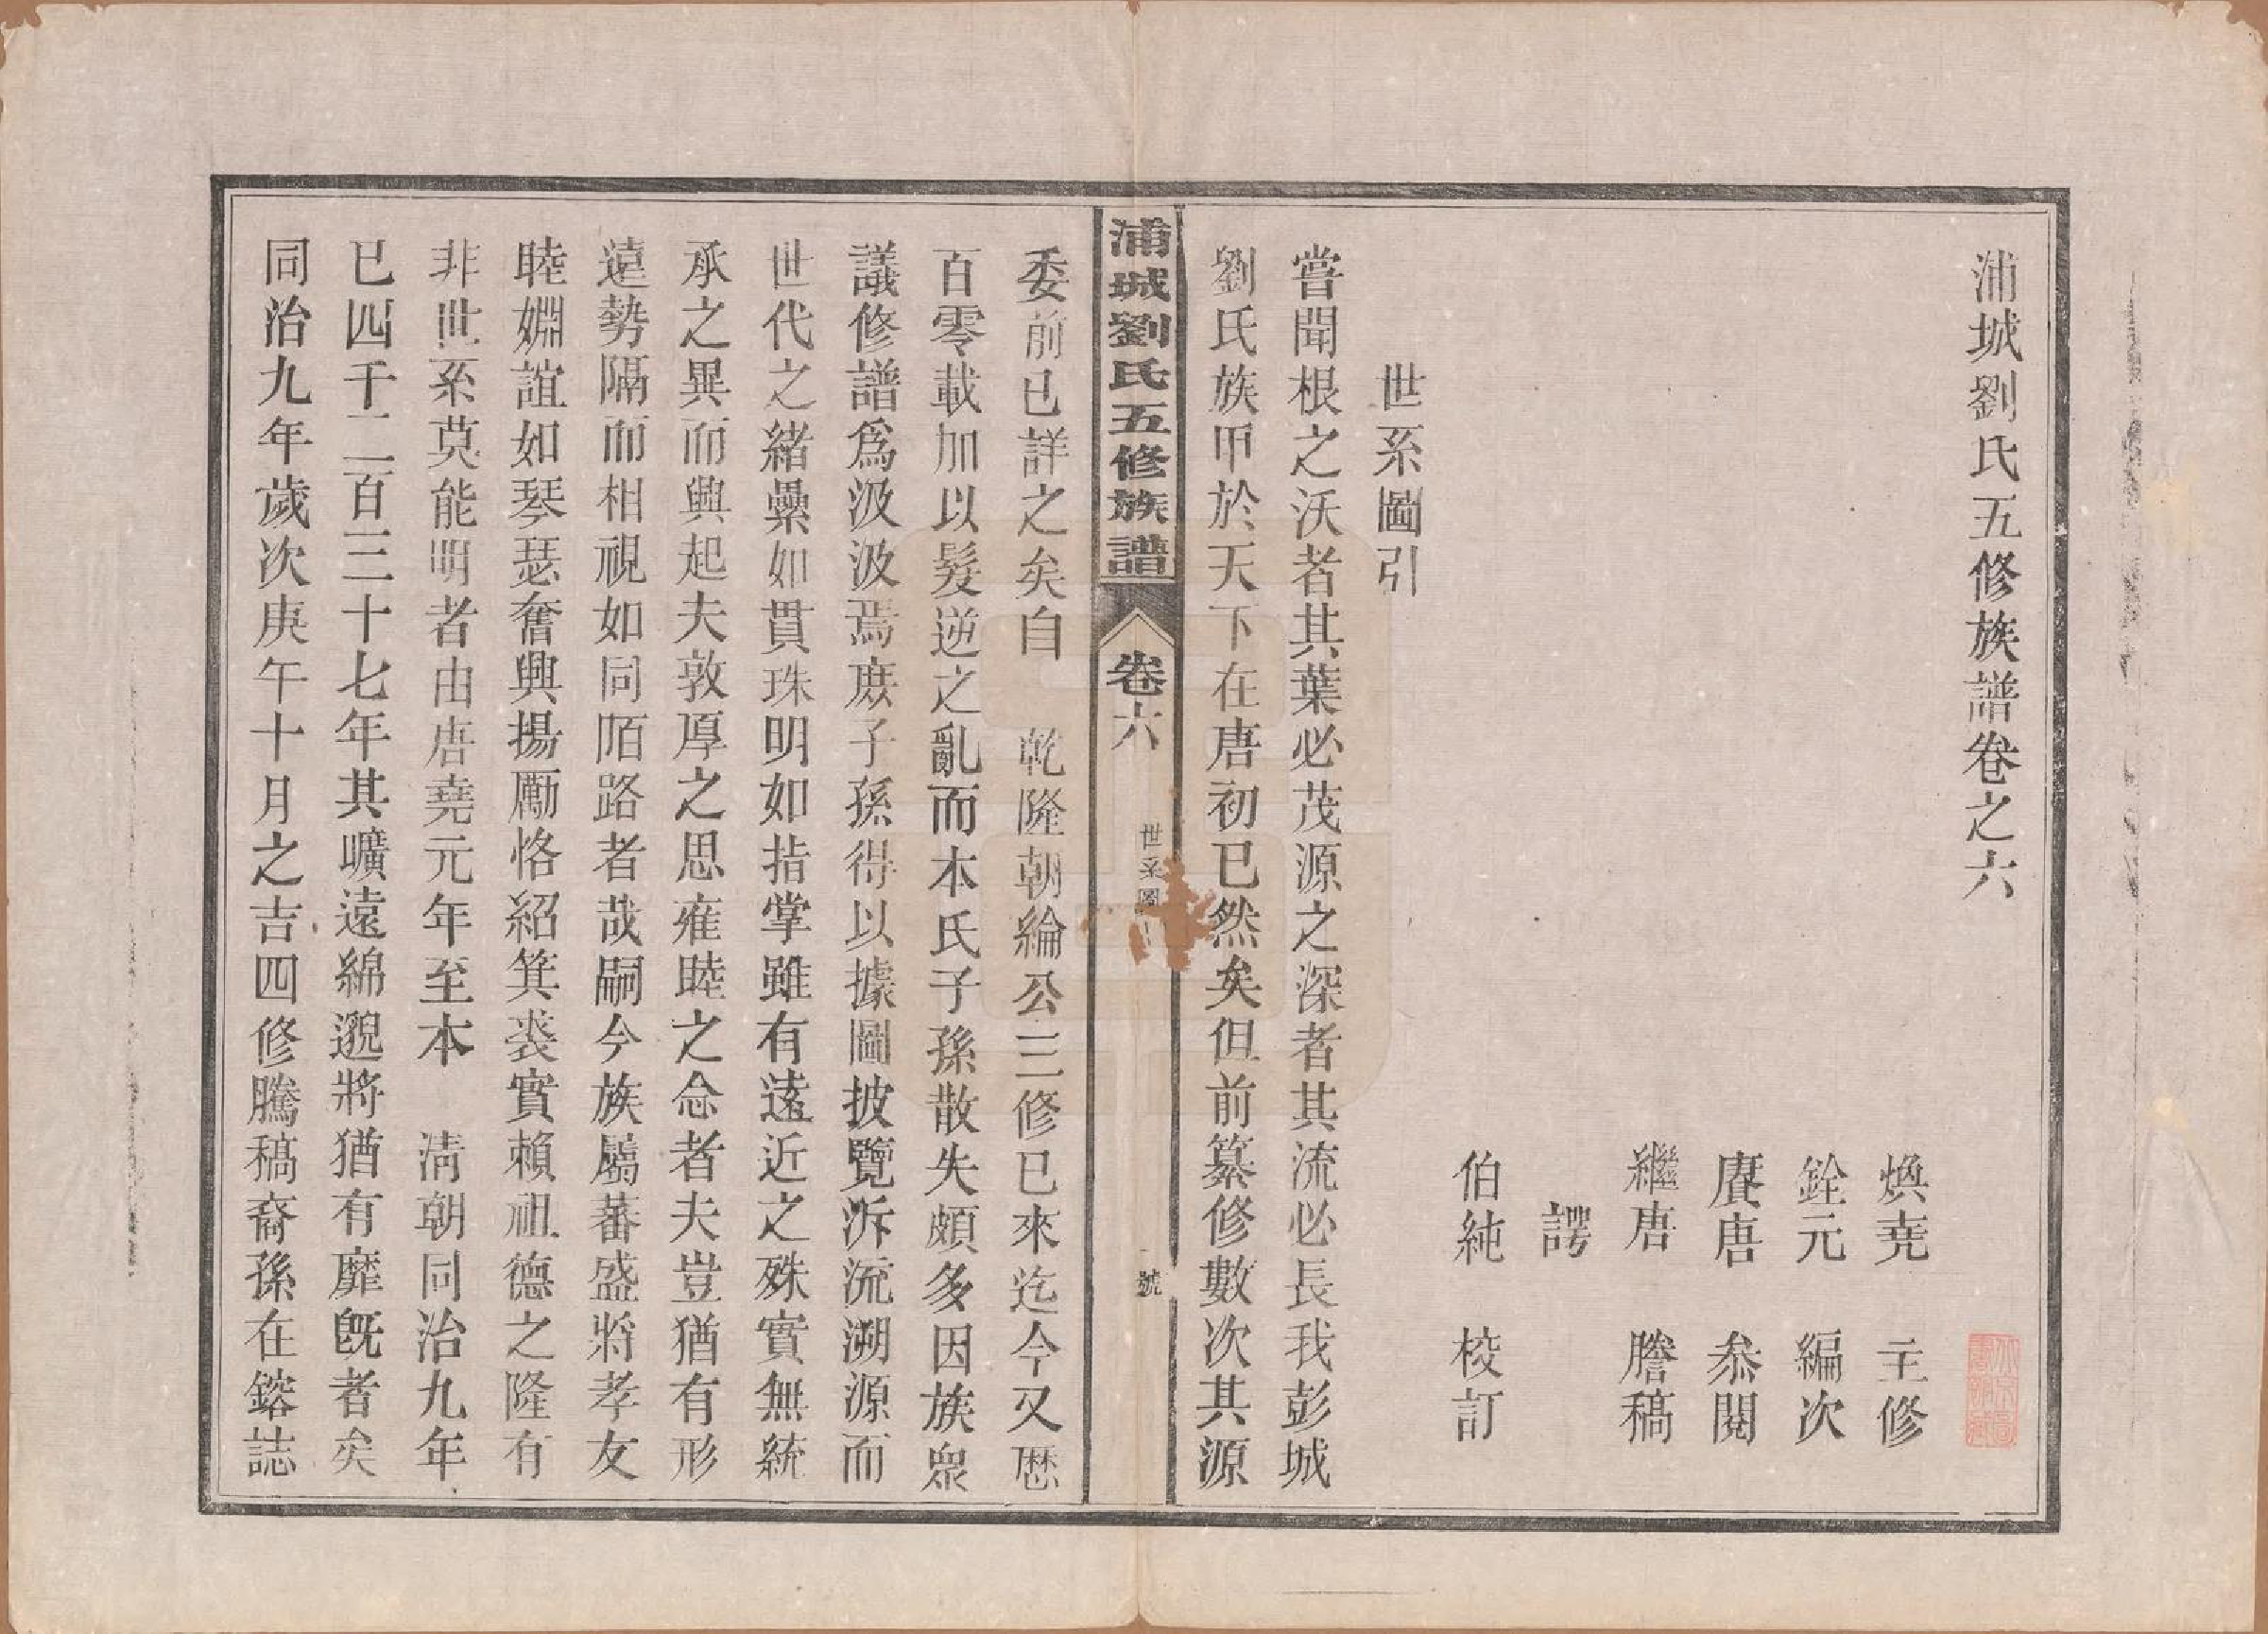 浦城劉氏五修族譜卷之六
煥堯　主修
銓元　編次
賡唐　叅閱
繼唐　謄稿
諤
伯純　校訂
世系圖引
嘗聞根之沃者其葉必茂源之深者其流必長我彭城
劉氏族甲於天下在唐初已然矣但前纂修數次其源
浦城劉氏五修族譜　卷六　世系圖　號
委前已詳之矣自　乾隆朝綸公三修已來迄今又歷
百零載加以髮逆之亂而本氏子孫散失頗多因族眾
議修譜爲汲汲焉庶子孫得以據圖披覽泝流溯源而
世代之緒纍如貫珠明如指掌雖有遠近之殊實無統
承之異而興起夫敦厚之思雍睦之念者夫豈猶有形
遠勢隔而相視如同陌路者哉嗣今族屬蕃盛將孝友
睦婣誼如琴瑟奮興揚勵恪紹箕裘實賴祖德之隆有
非世系莫能明者由唐堯元年至本　清朝同治九年
已四千二百三十七年其曠遠綿邈將猶有靡旣者矣
同治九年歲次庚午十月之吉四修騰稿裔孫在鎔誌